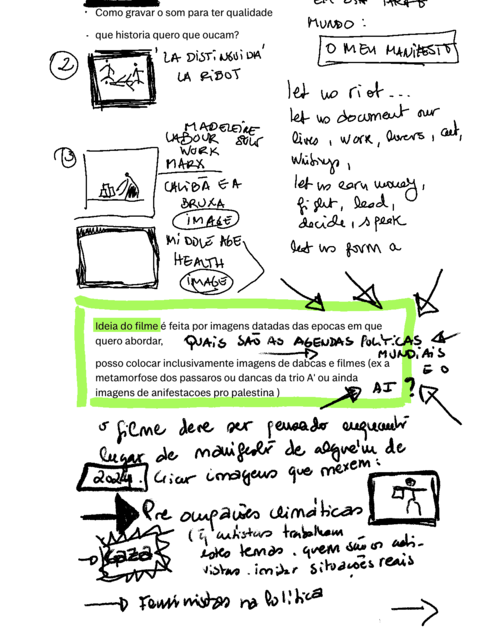 · Como gravar o som para ter qualidade
· que historia quero que oucam?
MUNDO:
O MEU MANIFESTO
2
'LA DISTINGUIDA'
LA RIBOT
let us riot...
let us document our
lives, work, lovers, cat,
writings,
let us earn money,
fight, lead,
decide, speak
let us form a
MADELEINE
LABOUR
WORK
MARX
CALIBÃ E A
BRUXA
IMAGE
MIDDLE AGE
HEALTH
IMAGE
Ideia do filme é feita por imagens datadas das epocas em que
quero abordar, QUAIS SÃO AS AGENDAS POLÍTICAS
MUNDIAIS
E O
AI ?
posso colocar inclusivamente imagens de dabcas e filmes (ex a
metamorfose dos passaros ou dancas da trio A' ou ainda
imagens de anifestacoes pro palestina )
o filme deve ser pensado enquanto
lugar de manifesto de alguém de
2024. Criar imagens que mexem:
Pre ocupações climáticas
(q artistas trabalham
estes temas. quem são os acti-
vistas. imitar situações reais
Gaza
Feministas na Política